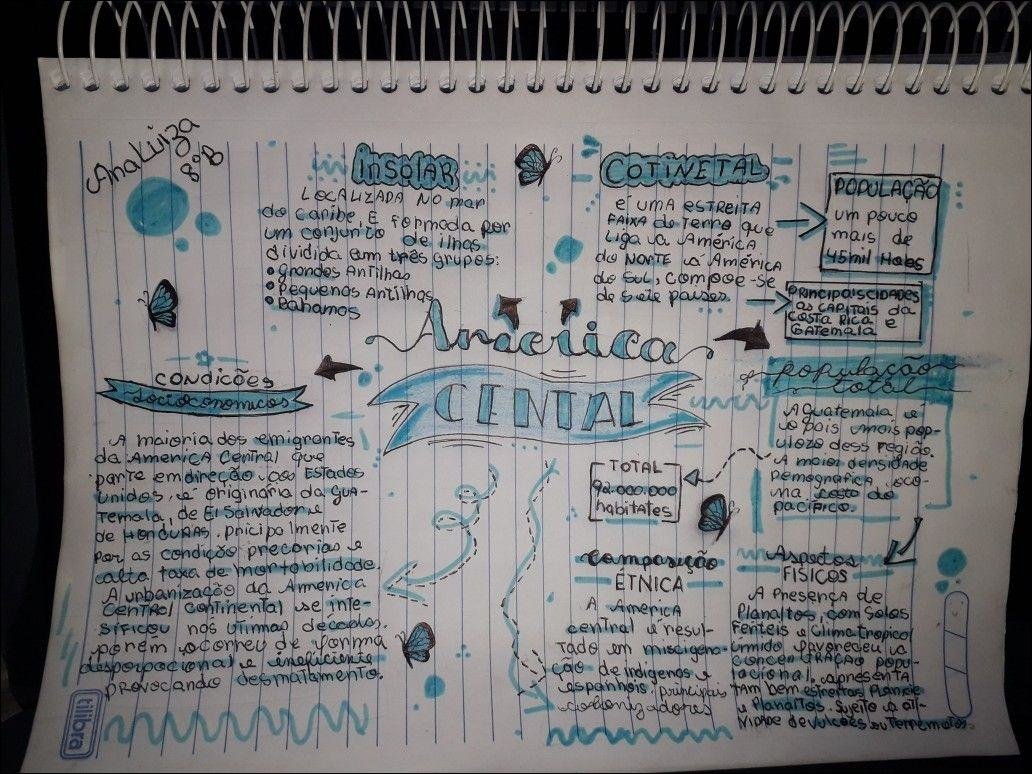 AnaLuiza
8ºB
INSOLAR
LOCALIZADA NO mar
do caribe, E formada por
um conjunto de ilhas
dividida em três grupos:
•Grandes Antilhas
•Pequenas Antilhas
•Bahamas
COTINETAL
é UMA ESTREITA
FAIXA de Terra que
Liga a América
do NORTE a América
do SUL, compõe-se
de Sete países
POPULAÇÃO
um pouco
mais de
45mil Habs
PRINCIPAIS CIDADES
as CAPITAIS da
COSTA RICA e
GATEMALA
América
CENTAL
CONDIÇÕES
Socioconomicos
A maioria dos emigrantes
da America Central que
parte em direção aos Estados
Unidos, e originária da GUA-
Temala, de El Salvador e
de HONDURAS, pricipalmente
Por as condição precarias e
alta taxa de mortobilidade.
A urbanização da America
CENTRAL continental se inte-
sificou nos útimas decadas,
porem ocorreu de forma
desporpocional e eneficiente
provocando desmatamento.
população
total
A Guatemala, e
o pais mais pop-
ulozo dess região.
A maior densidade
Demografica, oco-
na costa do
pacífico.
TOTAL
92.000.000
habitates
composição
ÉTNICA
A America
central é resul-
Tado em miscigena-
ção de indigenas e
espanhois, principais
colonizadores
Aspectos
FISICOS
A Presença de
Planaltos, com Solos
Ferteis e Clima Tropical
úmido favoreceu a
concenTRAÇÃO popu-
lacional, apresenta
Tam bem estreitas Planicie
e Planaltos. Sujeito a ati-
vidade de vulcões ou Terremotos.
tilibra